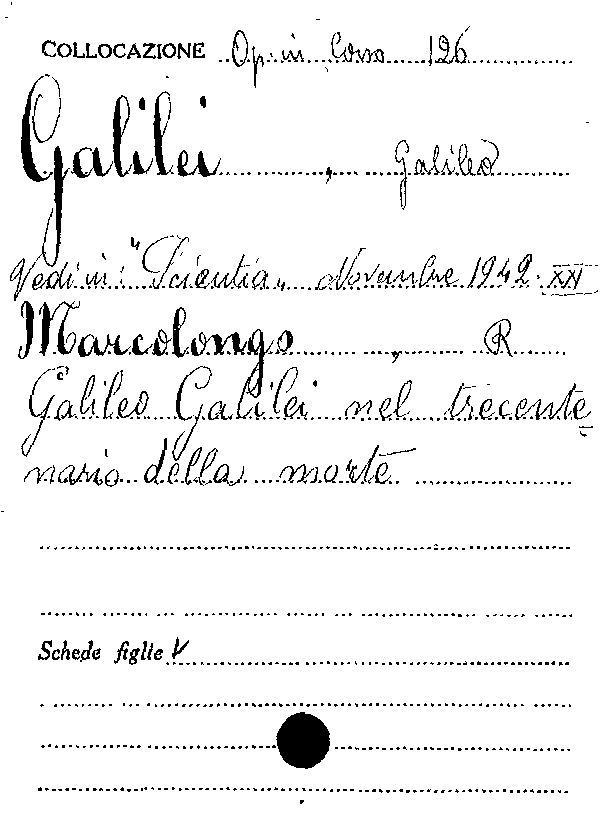 COLLOCAZIONE Op. in Corso 126
Galilei , Galileo
Vedi in: "Scientia„ Novembre 1942. XXI
Marcolongo , R
Galileo Galilei nel trecente
nario della morte
Schede figlie V